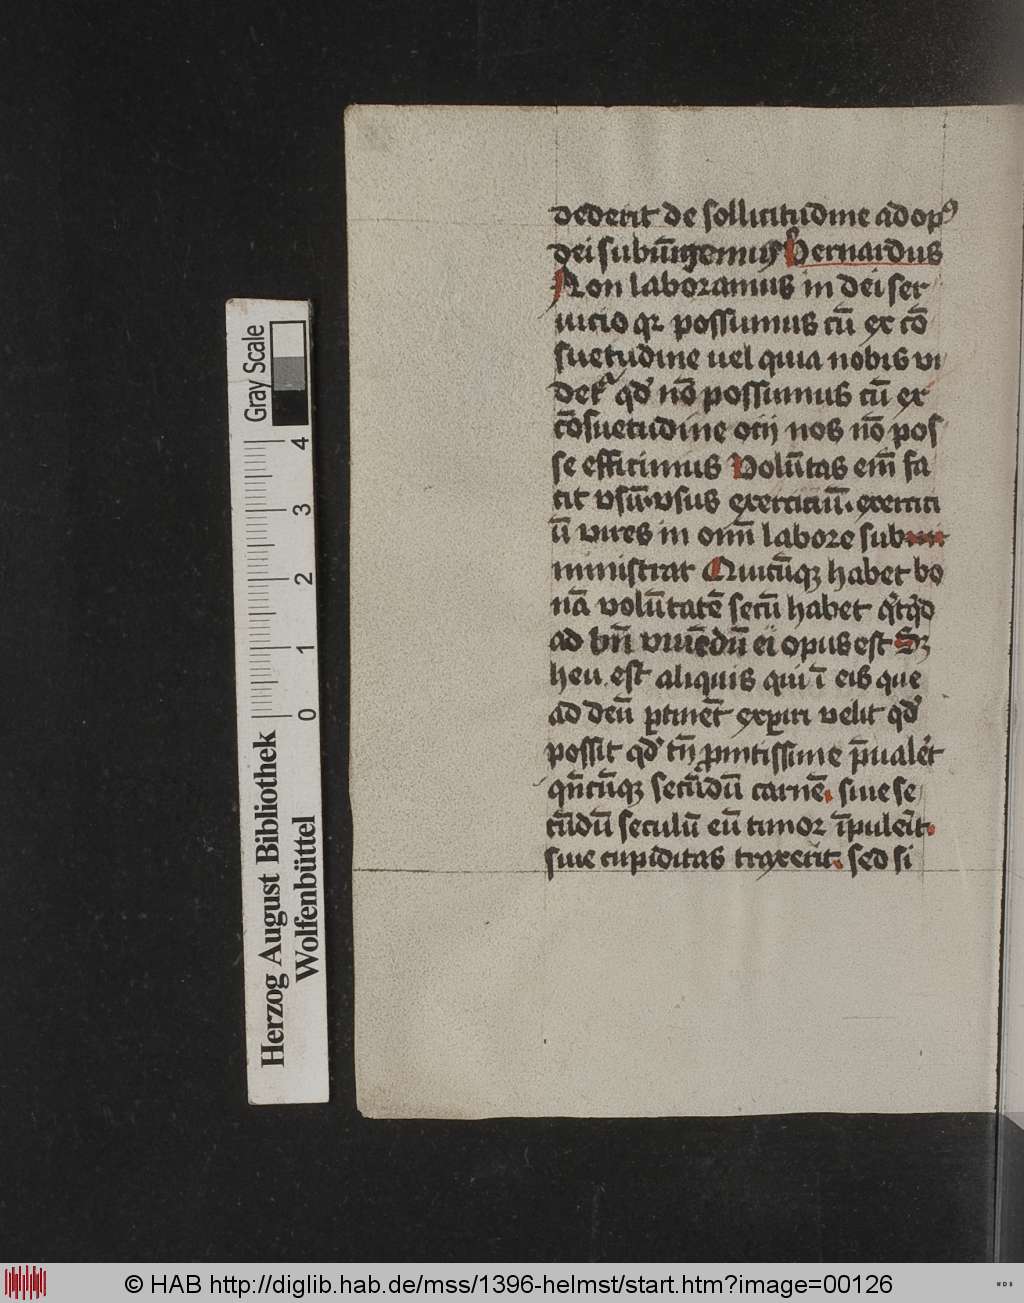 dederit de sollicitudine ad opꝰ
dei subiūgemus Bernardus
Non laboramus in dei ser
uicio qꝛ possumus cū ex cō
suetudine uel quia nobis vi
detᷣ qđ nō possumus cū ex
cōsuetudine otij nos nō pos
se efficimus Volūtas em̄ fa
cit vsū· vsus exercitiū· exerciti
ū vires in omī labore sub
ministrat Quicūqꝫ habet bo
nā volūtatē secū habet
ad bn̄ viuēdū ei opus est Sꝫ
heu est aliquis qui ī eis que
ad deū ꝑtinēt exꝑiri velit qđ
possit qđ tn̄ ꝓmtissime p̄ualēt
qn̄cūqꝫ secūdū carnē. siue se
cūdū seculū eū timor īpulerit.
siue cupiditas traxerit. sed si
Gray Scale
4 3 2 1 0
Herzog August Bibliothek
Wolfenbüttel
© HAB http://diglib.hab.de/mss/1396-helmst/start.htm?image=00126